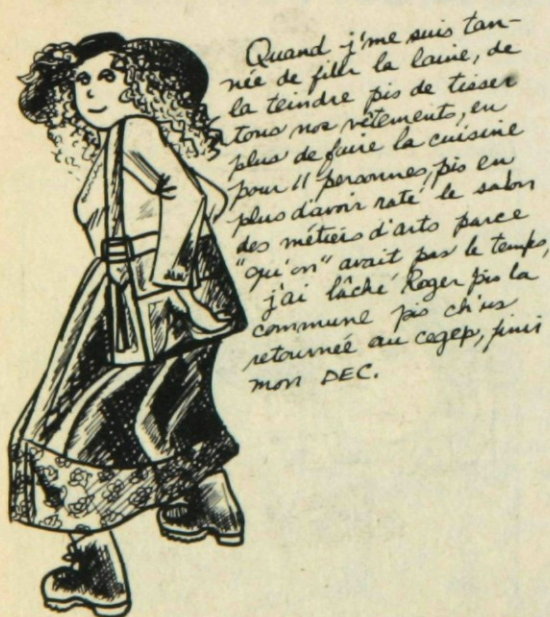 Quand j'me suis tan-
née de filer la laine, de
la teindre pis de tisser
tous nos vêtements, en
plus de faire la cuisine
pour 11 personnes, pis en
plus d'avoir raté le salon
des métiers d'arts parce
"qu'on" avait pas le temps,
j'ai lâché Roger pis la
commune pis ch'us
retournée au cegep, finir
mon DEC.